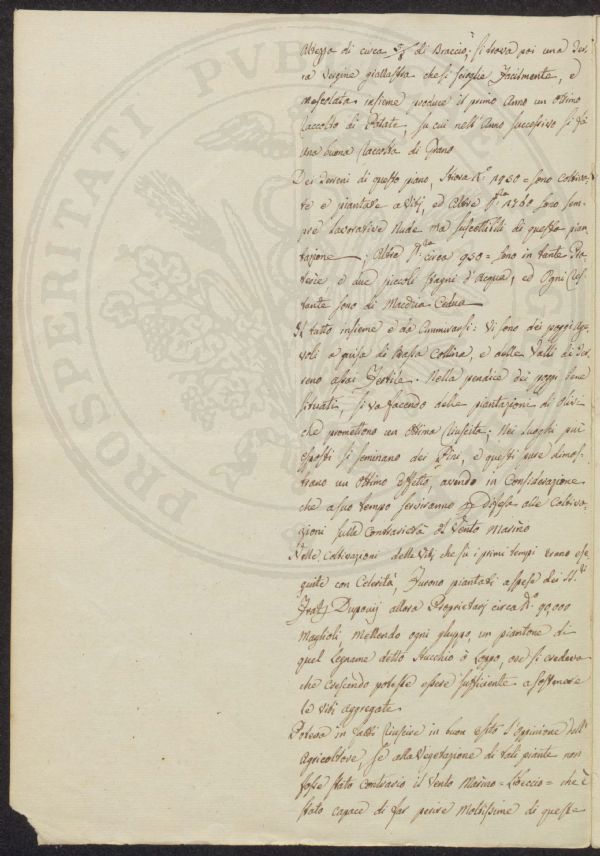 altezza di circa 3/8 di Braccio; si trova poi una Ter-
ra Vergine giallastra che si scioglie Facilmente, e
mescolata insieme produce il primo Anno un Ottimo
Raccolto di Patate, su cui nell'Anno successivo si fà
una buona Raccolta di Grano
Dei Terreni di questo piano, Stiora N.º 1950 = sono Coltiva-
te e piantate a Viti, ed Altre N. 1760 sono sem-
pre lavorative Nude ma suscettibili di questa pian-
tazione; Altre N. circa 950 = sono in tante Pra-
terie, e due piccoli stagni d'Acqua, ed Ogni res-
tante sono di Macchia Cedua
Il tutto insieme è da Ammirarsi: Vi sono dei poggi age-
voli a guisa di Bassa Collina, e delle Valli di Ter-
reno assai Fertile. Nella pendice dei poggi bene
situati, si va facendo delle piantazioni di Olivi
che promettono un Ottima riuscita; Nei luoghi più
esposti si seminano dei Pini, e questi pure dimos-
trano un Ottimo effetto, avendo in Considerazione
che a suo tempo serviranno di Difesa alle Coltiva-
zioni sulle Contrarietà del Vento Marino
Nelle Coltivazioni delle Viti che sù i primi tempi erano ese-
guite con Celerità, Furono piantati a spese dei SS.ri
Frat.j Dupouij allora Proprietarj circa N.º 90,000
Maglioli, Mettendo ogni gluppo, un piantone di
quel Legname detto Stucchio ò Loppo, ove si credeva
che Crescendo potesse essere sufficiente a sostenere
le viti aggregate.
Poteva in fatti riuscire in buon esito l'oppinione dell'
Agricoltore, se alla Vegetazione di tali piante non
fosse stato Contrario il Vento Marino = Libeccio = che è
stato capace di far perire Moltissime di queste
PROSPERITATI PVBLICAE